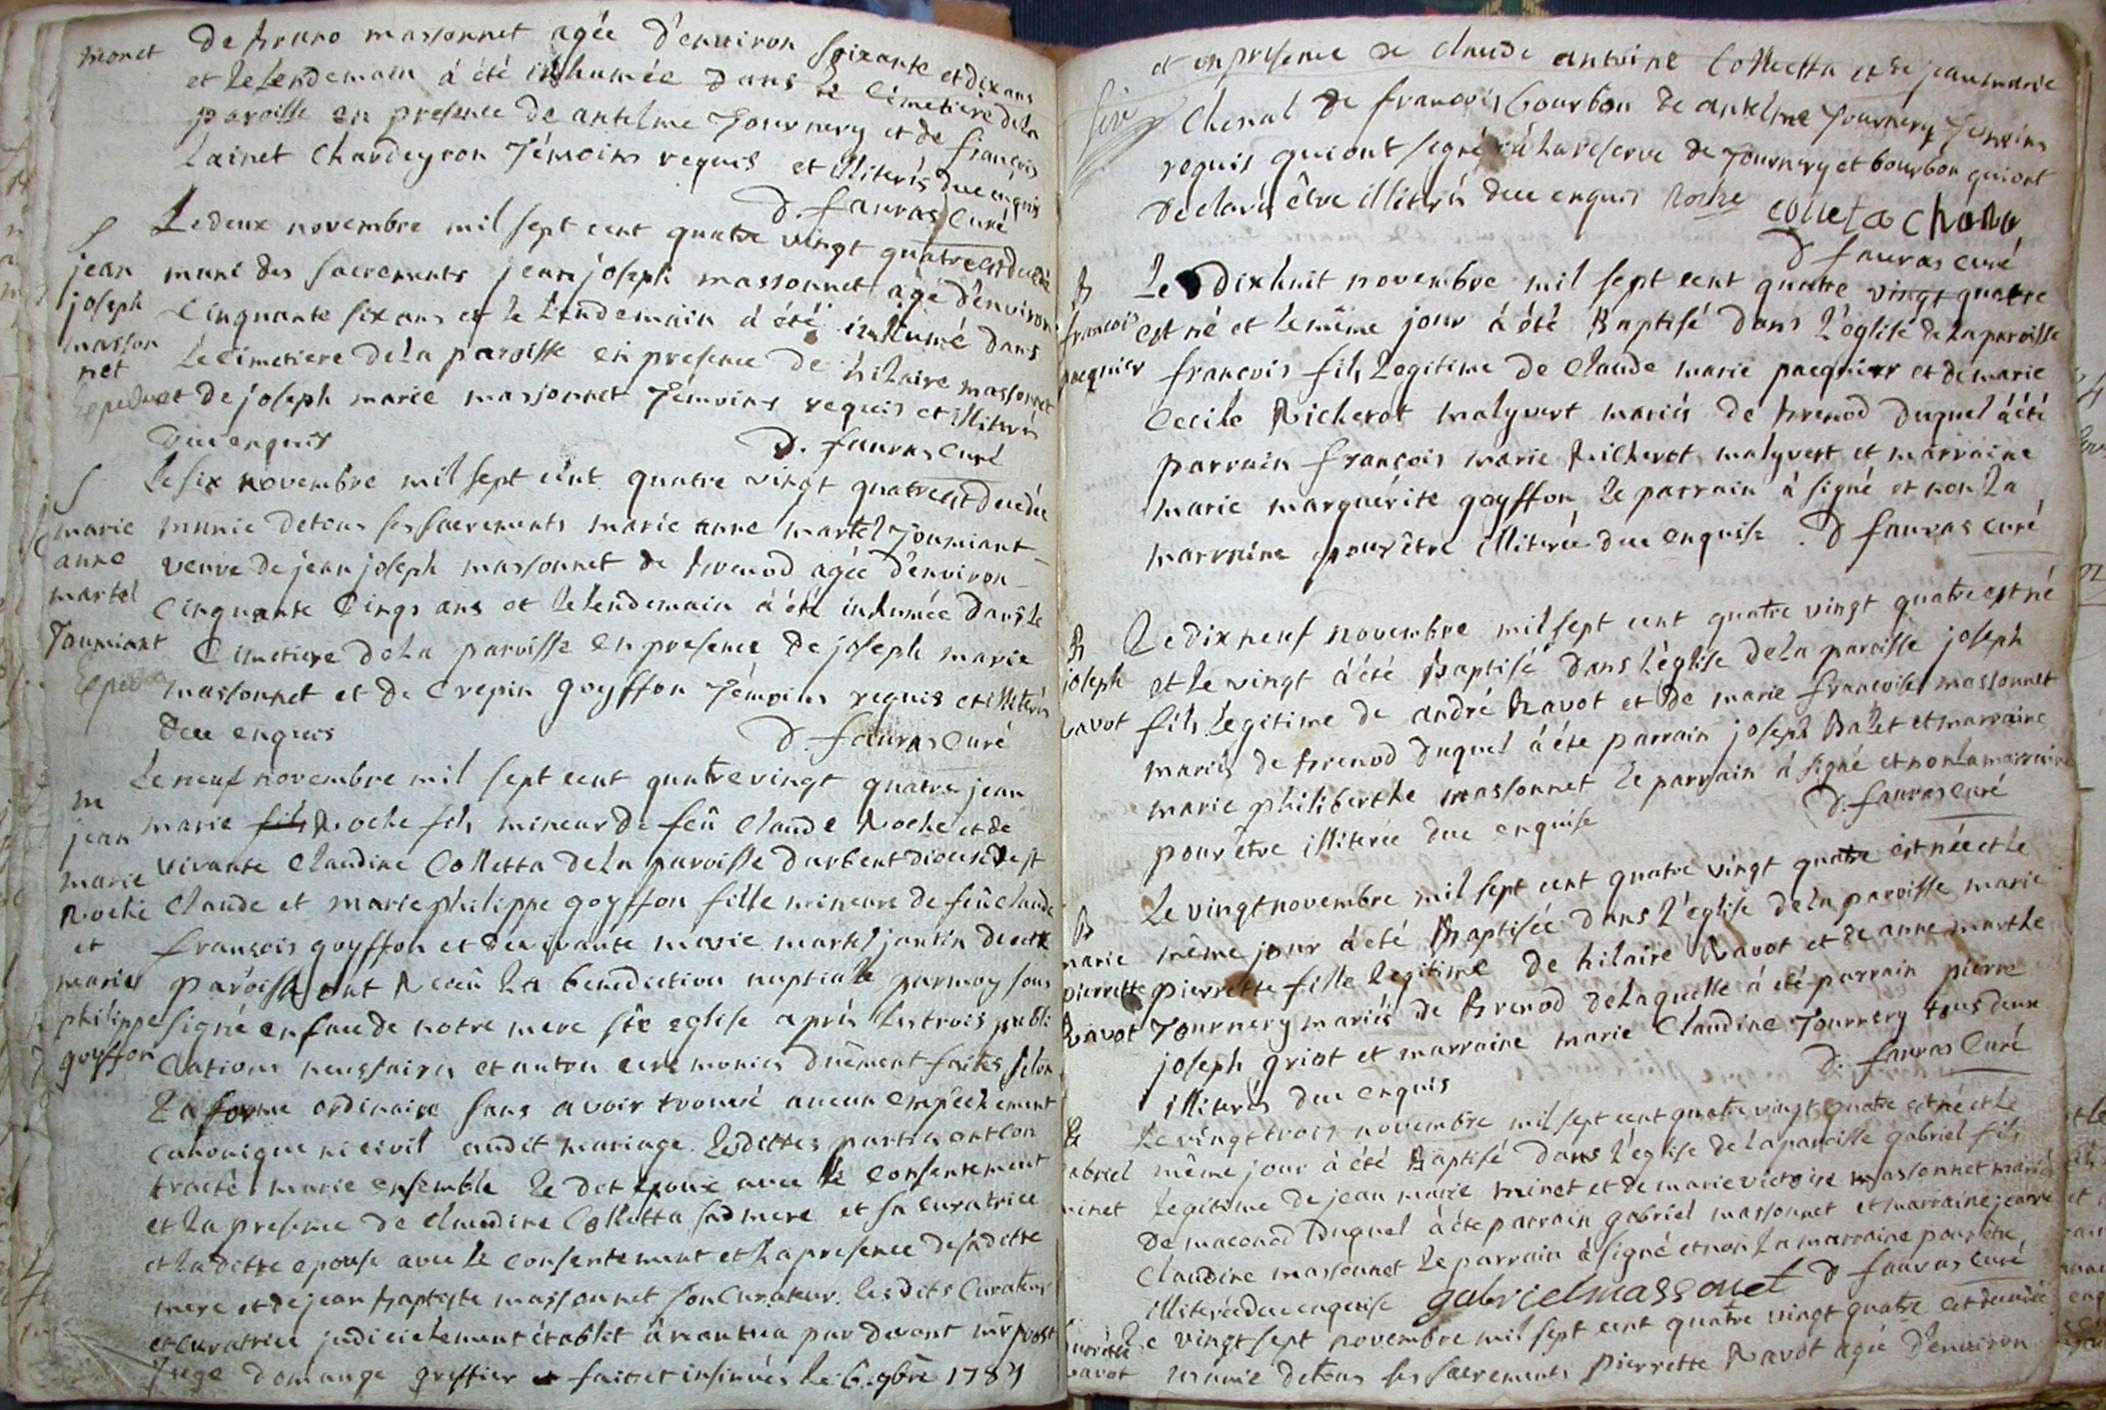 de Bruno massonnet agée d'environ soixante et dix ans
monet
et le lendemain à été inhumée dans le Cimetiere de la
paroisse en presence de antelme Tournery et de françois
Lainet Chardeyron Témoins requis et illiterés due enquis
D. fauras Curé
S
jean
joseph
masson
net
Expedié
Le deux novembre mil sept cent quatre vingt quatre est decédé
muni des sacrements jean joseph massonnet agé d'environ
Cinquante six ans et le lendemain à été inhumé dans
le Cimetiere de la paroisse en presence de hilaire massonnet
et de joseph marie massonnet Témoins requis et illiterés
due enquis
D. fauras Curé
S
marie
anne
martel
Toumiant
Le six novembre mil sept cent quatre vingt quatre est decedée
munie de tous ses sacrements marie anne martel Toumiant
veuve de jean joseph massonnet de Brenod agée d'environ
Cinquante Cinqs ans et le lendemain à été inhumée dans le
Cimetiere de la paroisse en presence de joseph marie
massonnet et de Crepin goyffon Témoins requis et illiterés
due enquis
D. fauras Curé
m
jean
marie
Roche
et
marie
philippe
goyffon
Le neuf novembre mil sept cent quatre vingt quatre jean
marie fils Roche fils mineur de feû Claude Roche et de
vivante Claudine Colletta de la paroisse
Claude et marie philippe goyffon fille mineure de feû Claude
françois goyffon et de vivante marie martel jantin de cette
paroisse ont Reçû la benediction nuptiale par moy sous
signé en face de notre mere ste eglise après les trois publi
cations necessaires et autres ceremonies duëment faites selon
La forme ordinaire sans avoir trouvé aucun empechement
canonique ni civil audit mariage. Lesdittes parties ont con
tracté marié ensemble le dit époux avec le consentement
et la presence de Claudine Colletta sa mere et sa curatrice
et la ditte epouse avec le consentement et la presence de saditte
mere et de jean baptiste massonnet son Curateur. les dits Curateur
et curatrice judicielement établit à nantua par devant
juge domange greffier et fait et insinués le 6. 9bre 1784
et en presence de claude antoine Colletta et de jean marie
Chenal de françois bourbon de antelme Tournery Temoins
requis qui ont signé à la reserve de Tournery et bourbon qui ont
declarés être illiterés due enquis Roche Colleta Chana
D fauras curé
B
françois
pacquier
Le dix huit novembre mil sept cent quatre vingt quatre
est né et le même jour à été Baptisé dans l'église de la paroisse
françois fils Legitime de Claude marie pacquier et de marie
Cecile Richerot malyvert mariés de brenod duquel à été
parrain françois marie Richerot malyvert et marraine
marie marguérite goyffon, le parrain à signé et non la
marraine pour être illiterée due enquise. D fauras curé
B
joseph
Ravot
Le dix neuf novembre mil sept cent quatre vingt quatre est né
et le vingt à été Baptisé dans l'église de la paroisse joseph
fils Legitime de andré Ravot et de marie françoise massonnet
mariés de brenod duquel à éte parrain joseph Balet et marraine
marie philiberthe massonnet le parrain à signé et non la marraine
pour être illiterée due enquise
D. fauras Curé
B
marie
pierrette
Ravot
Le vingt novembre mil sept cent quatre vingt quatre est née et le
même jour à été Baptisée dans l'église de la paroisse marie
pierrette fille legitime de hilaire Ravot et de anne marthe
Tournery mariés de Brenod de laquelle à été parrain pierre
joseph griot et marraine marie Claudine Tournery tous deux
illiterés due enquis
D. fauras Curé
B
gabriel
minet
Le vingt trois novembre mil sept cent quatre vingt quatre est né et le
même jour à été Baptisé dans l'église de la paroisse gabriel fils
legitime de jean marie minet et de marie victoire massonnet mariés
de maconod duquel à éte parrain gabriel massonnet et marraine jeanne
Claudine massonnet le parrain à signé et non la marraine pour être
illiterée due enquise gabriel massonet D fauras Curé
pierrette
Ravot
Le vingt sept novembre mil sept cent quatre vingt quatre est decedée
munie de tous ses sacrements pierrette Ravot agée d'environ